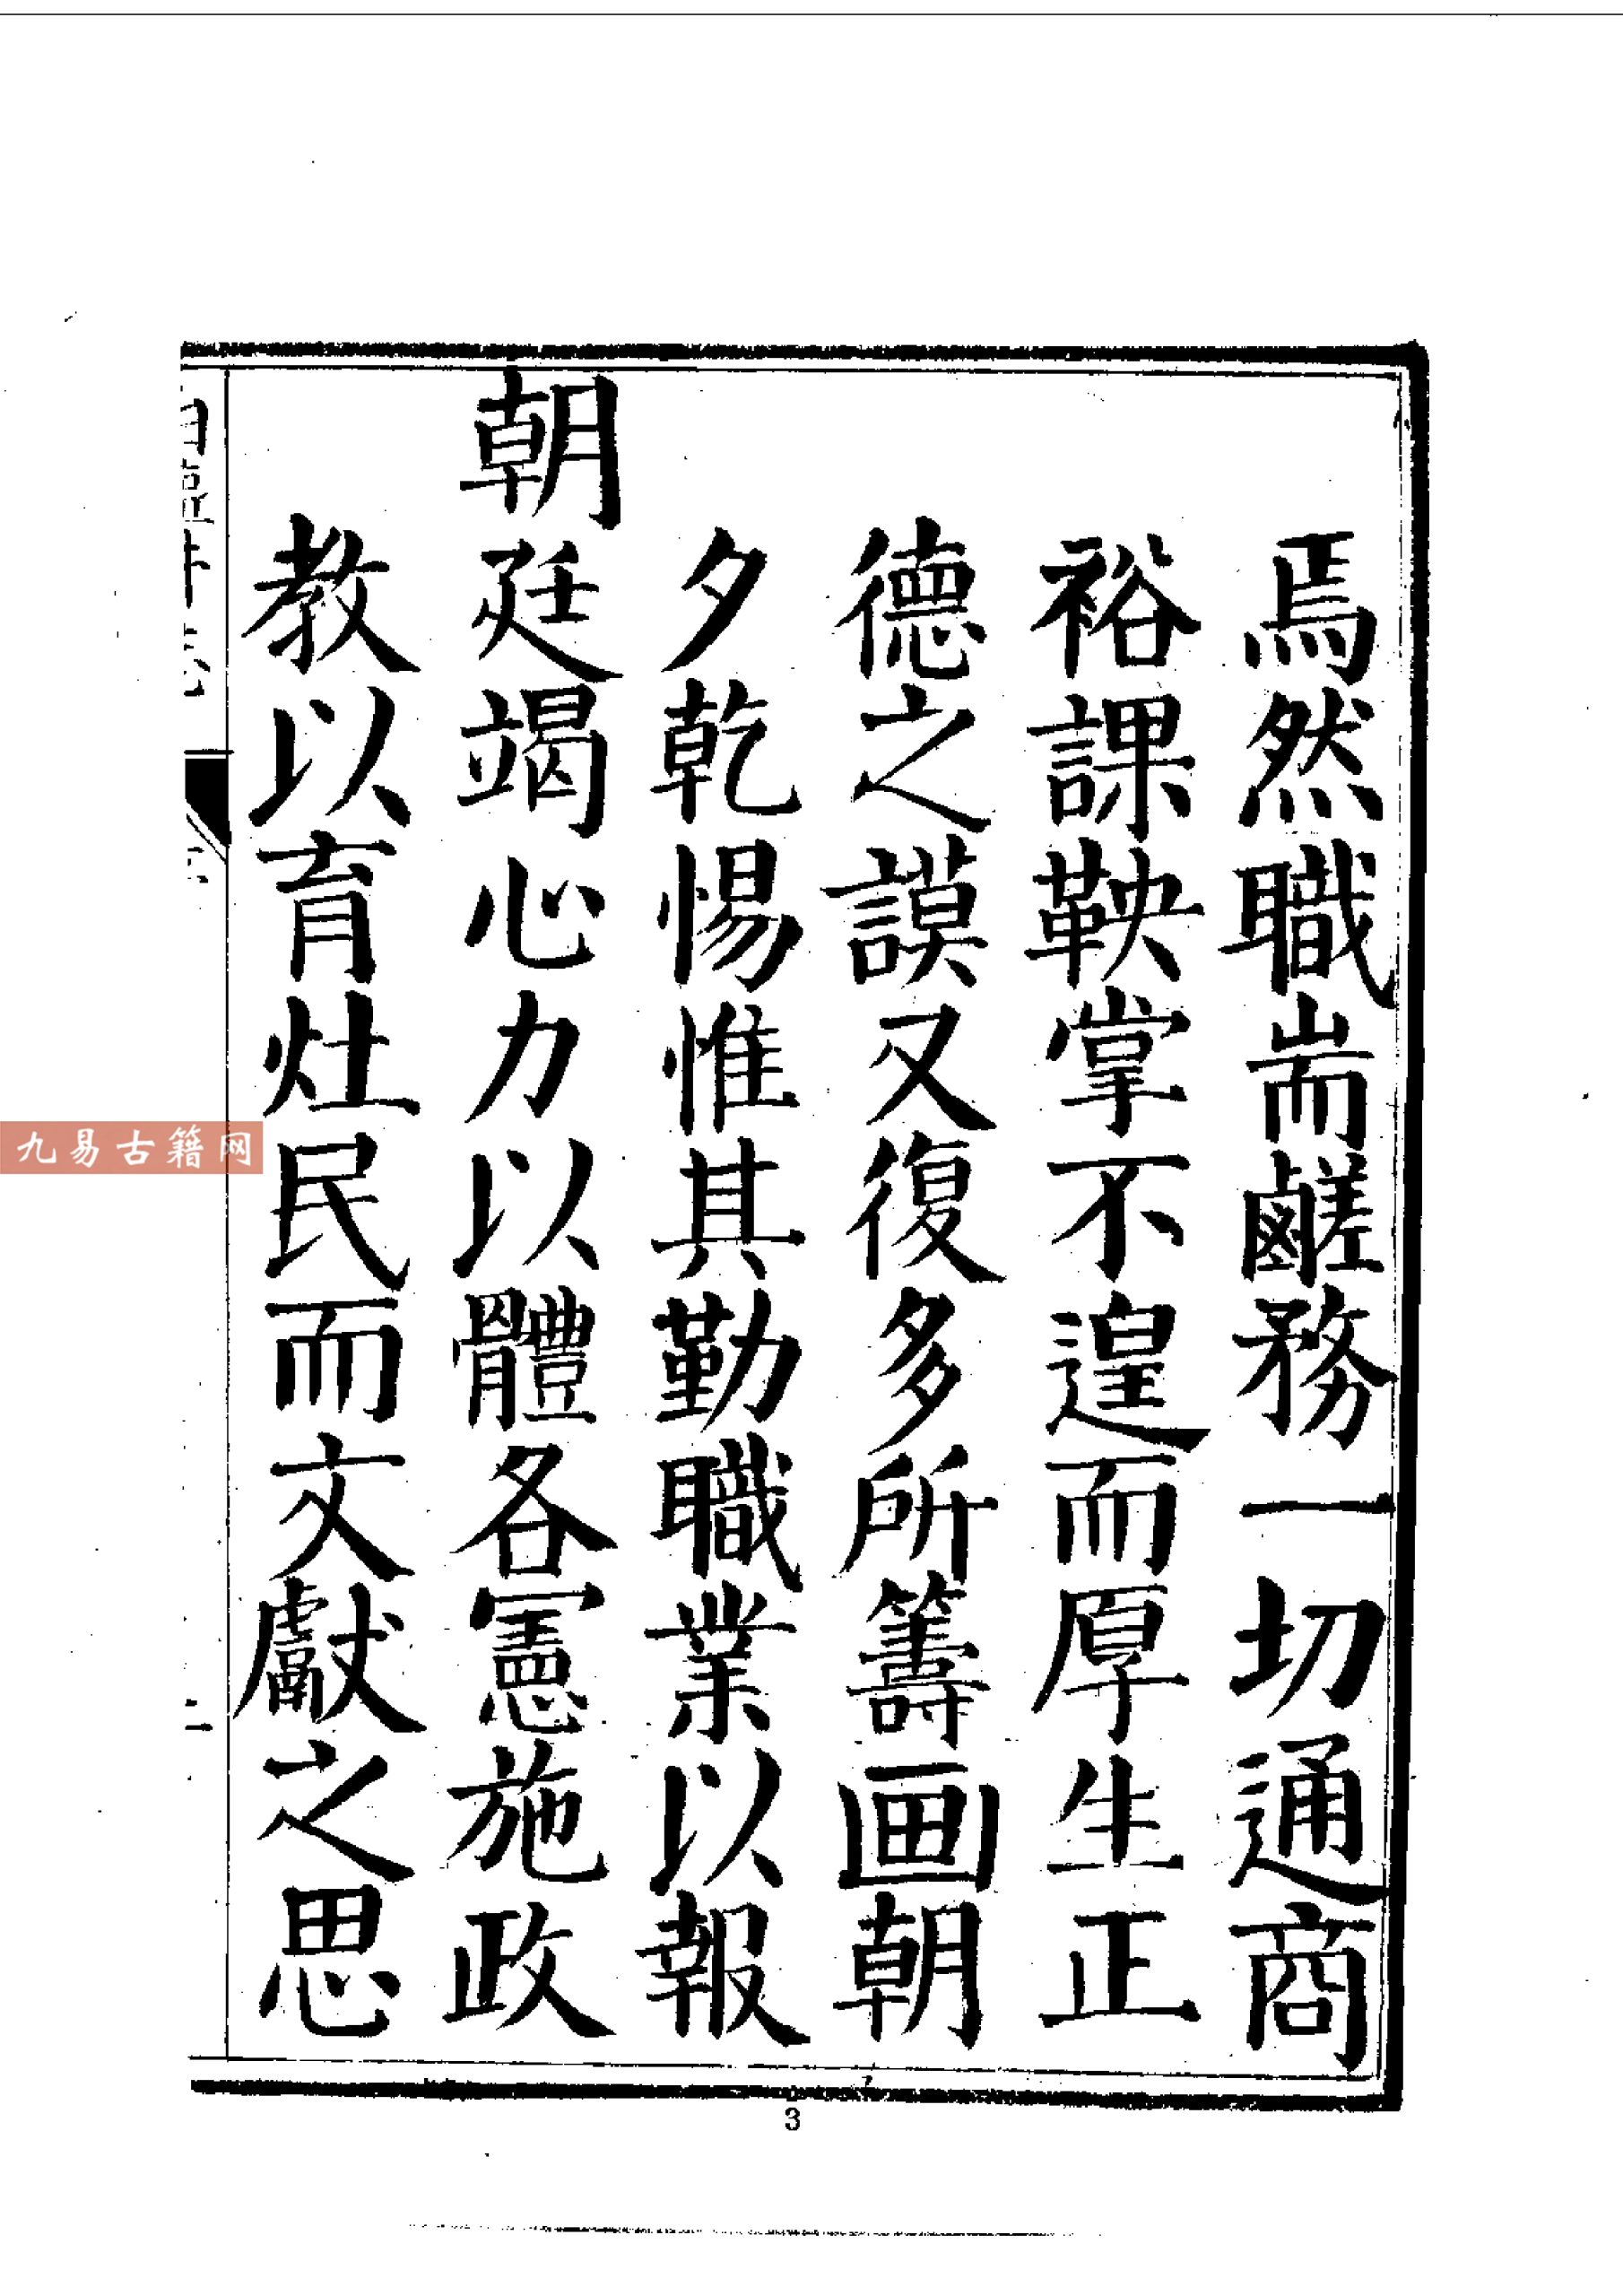 焉然職耑鹺務一切通商
裕課鞅掌不遑而厚生正
德之謨又復多所籌画朝
夕乾惕惟其勤職業以報
朝廷竭心力以體各憲施政
教以育灶民而文獻之思
九易古籍网
3